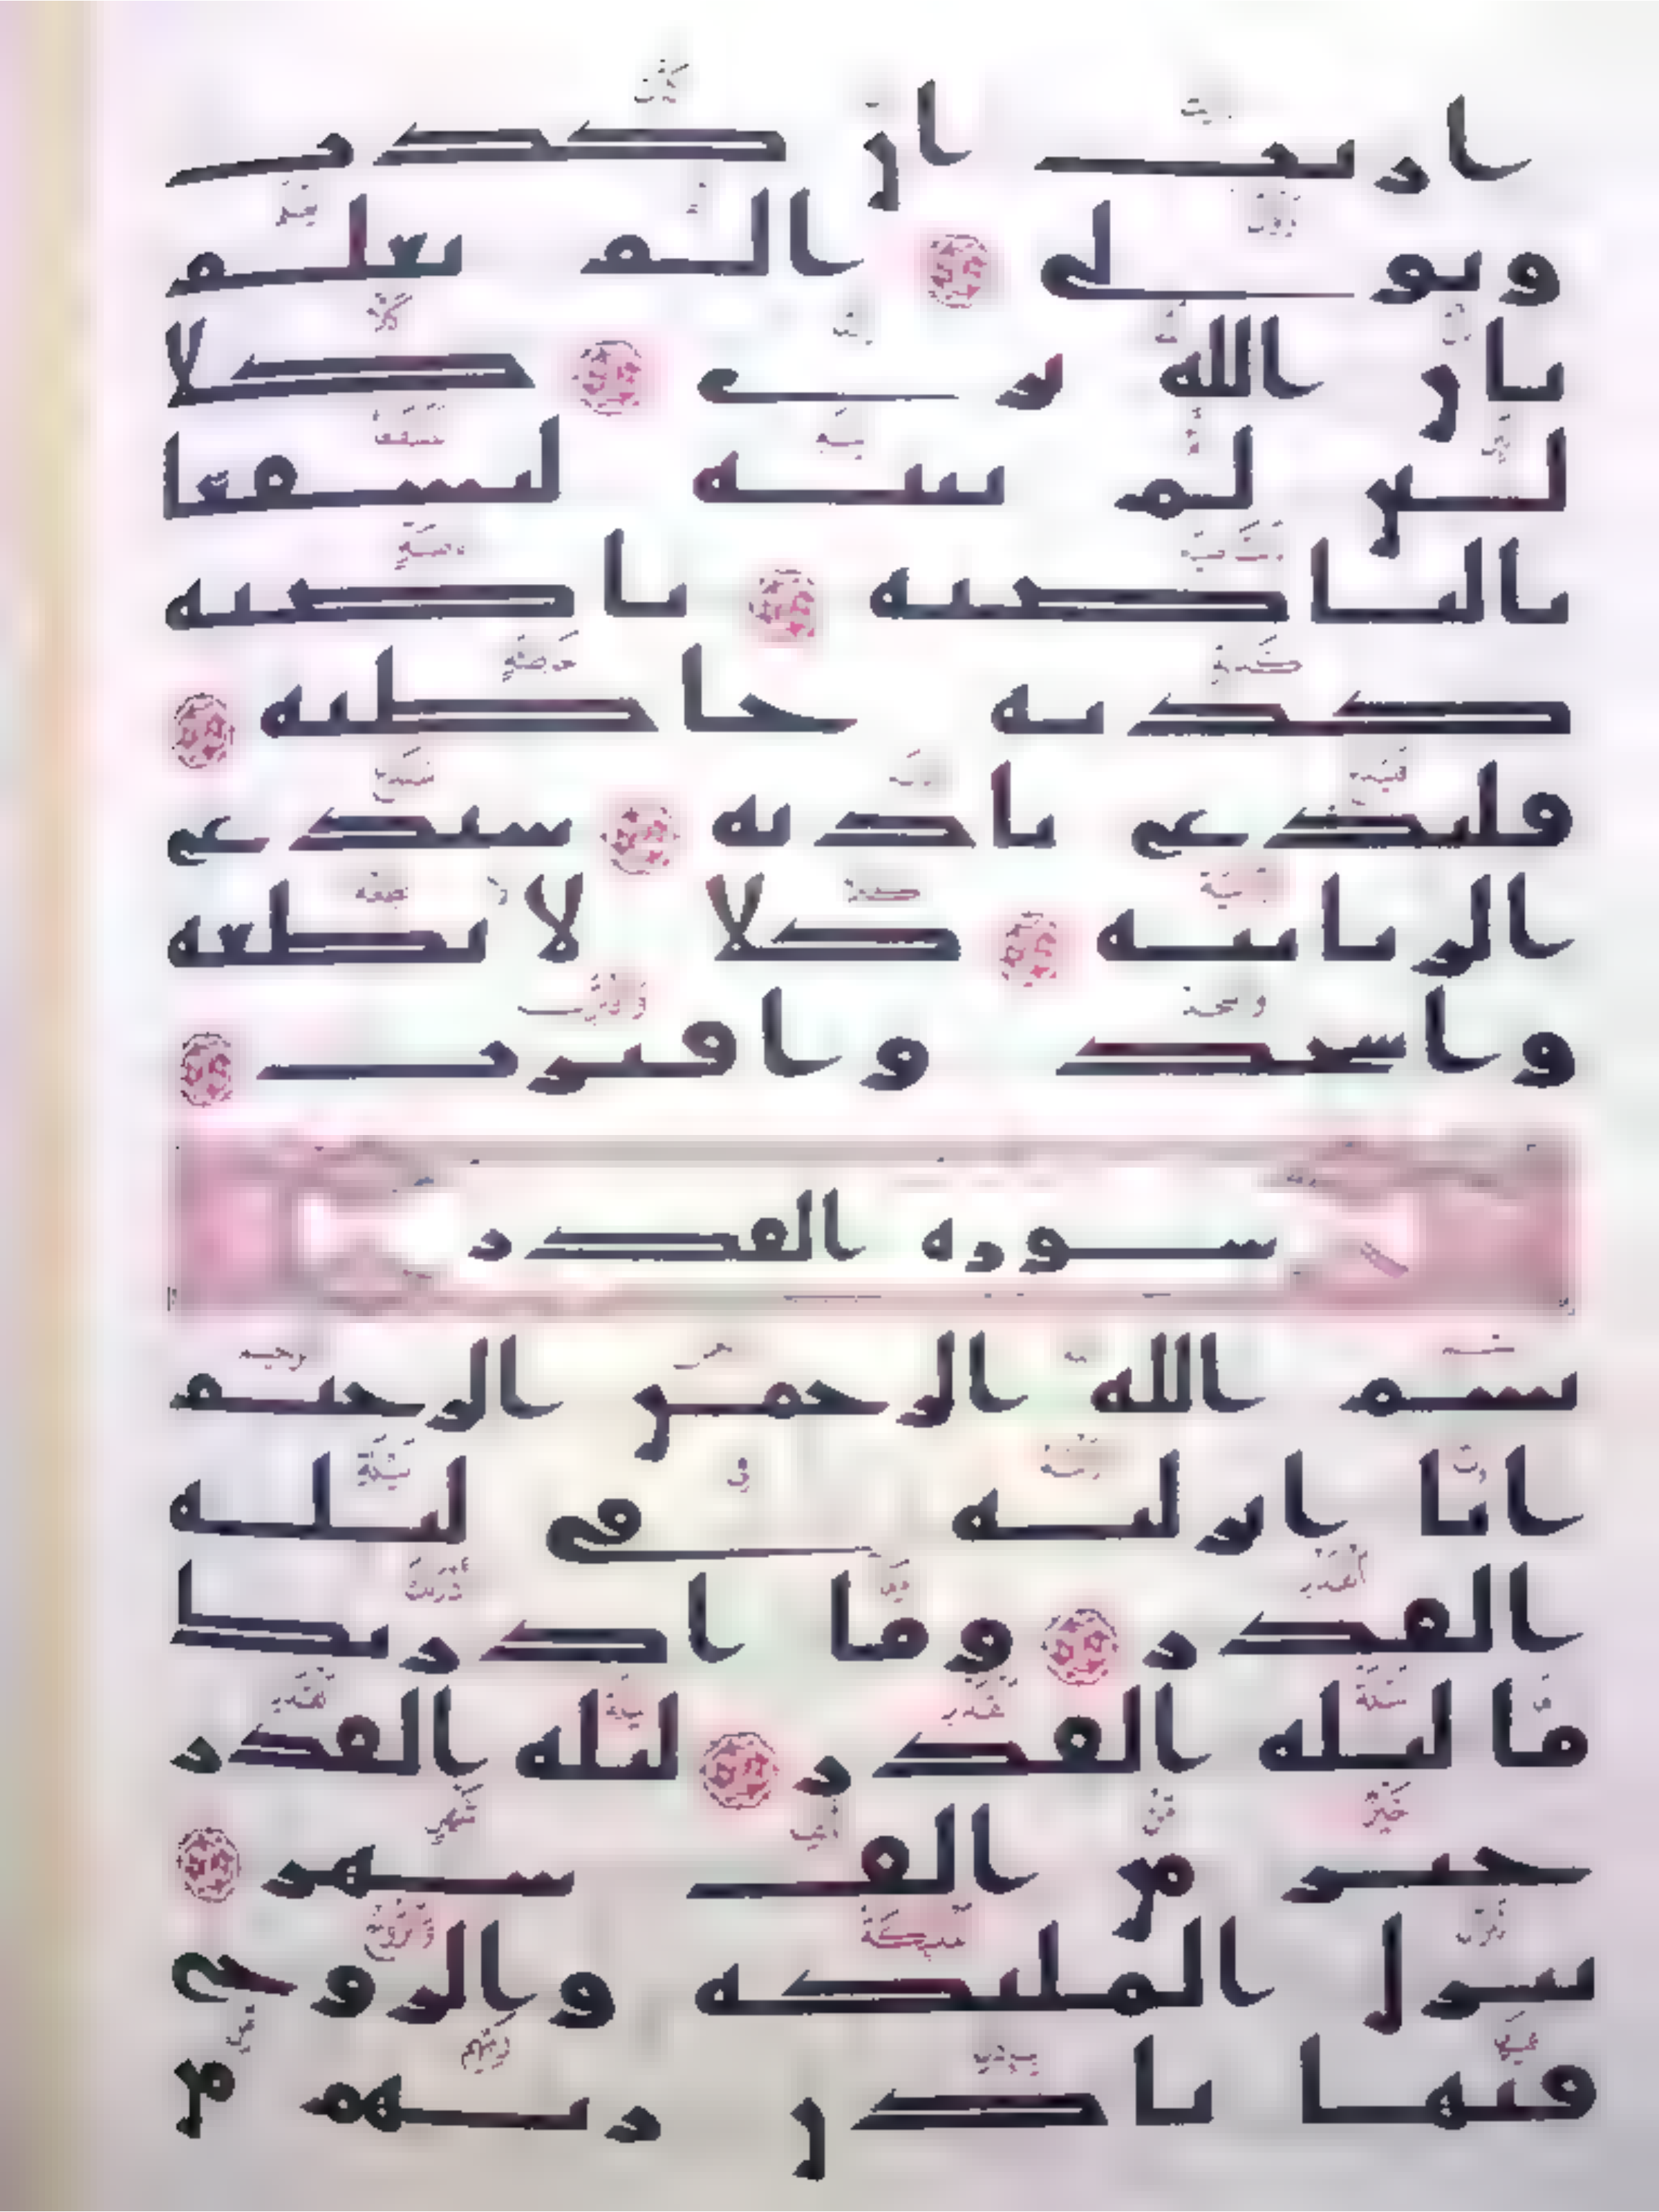 ارىت ان كذب
وتولى الم يعلم
بان الله يرى كلا
لىن لم ينته لنسفعا
بالناصية ناصية
كذبة خاطية
فليدع ناديه سندع
الزبانية كلا لا تطعه
واسجد واقترب
سورة القدر
بسم الله الرحمن الرحيم
انا انزلنه في ليلة
القدر وما ادريك
ما ليلة القدر ليلة القدر
خير من الف شهر
تنزل الملىكة والروح
فيها باذن ربهم من